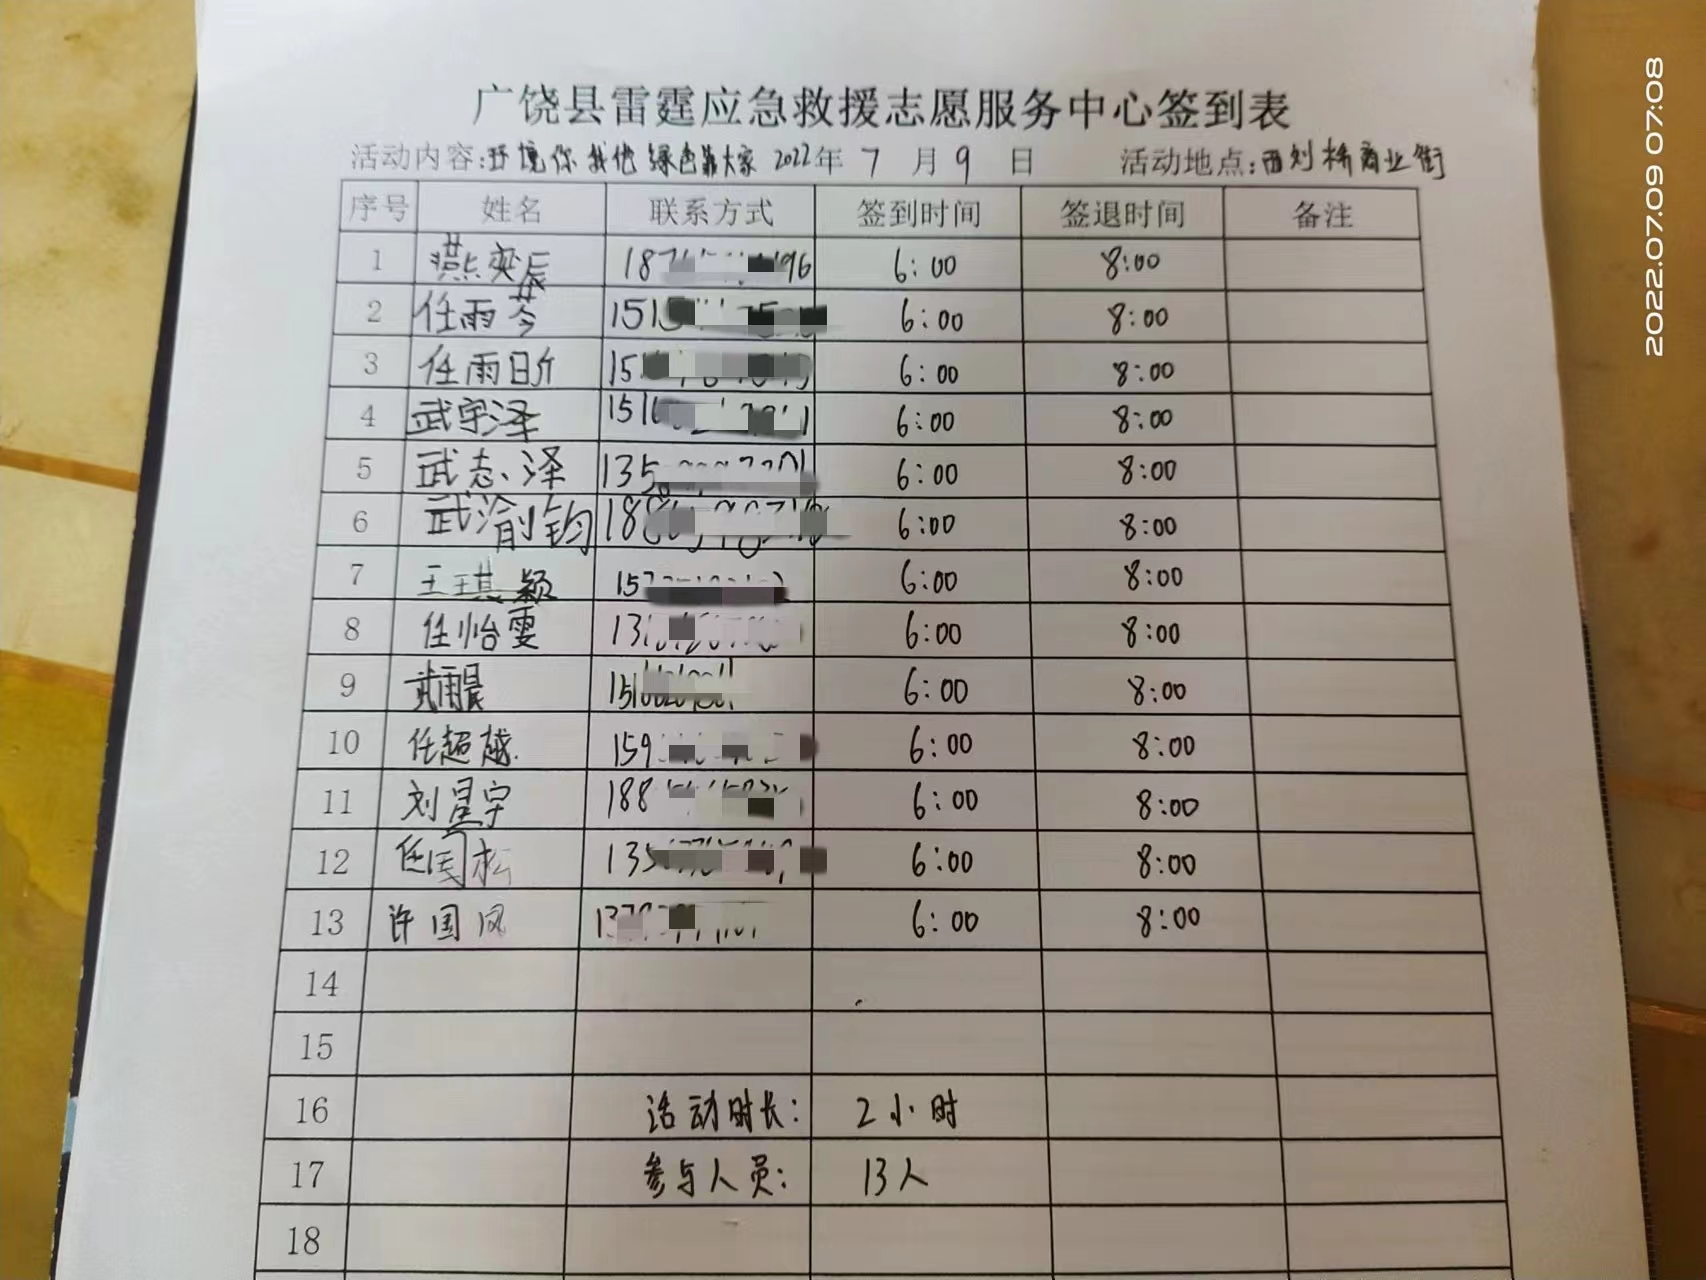 广饶县雷霆应急救援志愿服务中心签到表
活动内容:环境你我他 绿色靠大家 2022年 7 月 9 日 活动地点:西刘桥商业街
序号 姓名 联系方式 签到时间 签退时间 备注
1 燕奕辰 6:00 8:00
2 任雨芩 6:00 8:00
3 任雨昕 6:00 8:00
4 武宇泽 6:00 8:00
5 武志泽 6:00 8:00
6 武渝钧 6:00 8:00
7 王琪颖 6:00 8:00
8 任怡雯 6:00 8:00
9 武雨晨 6:00 8:00
10 任超越 6:00 8:00
11 刘星宇 6:00 8:00
12 任国松 6:00 8:00
13 许国风 6:00 8:00
14
15
16 活动时长: 2小时
17 参与人员: 13人
18
2022.07.09 07:08